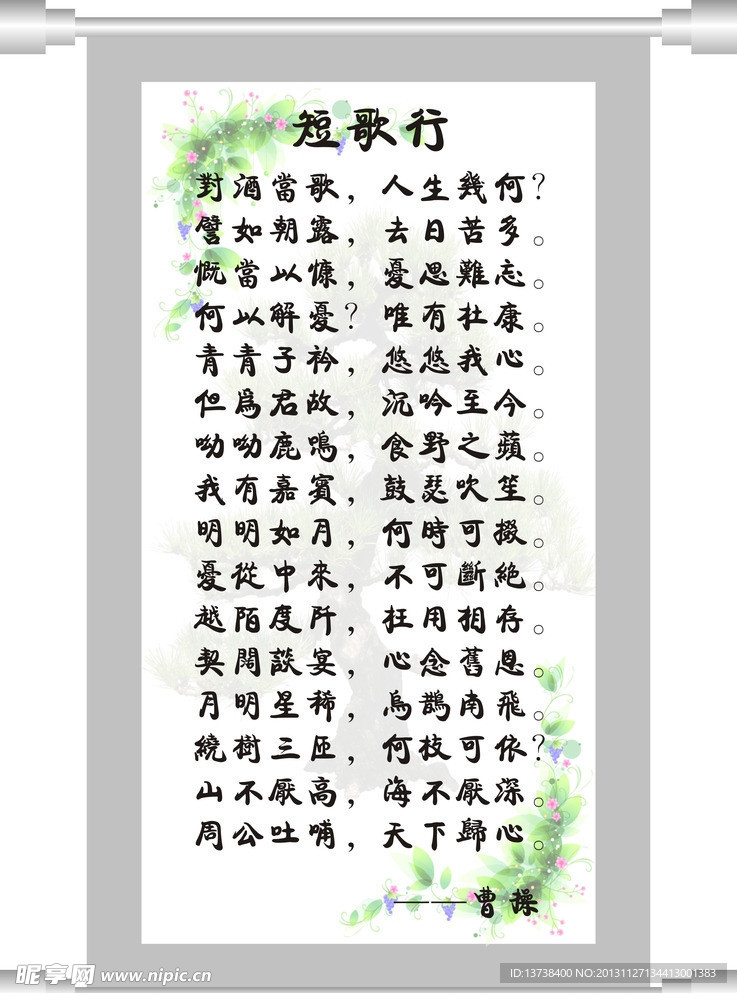 短歌行
對酒當歌，人生幾何？
譬如朝露，去日苦多。
慨當以慷，憂思難忘。
何以解憂？唯有杜康。
青青子衿，悠悠我心。
但爲君故，沉吟至今。
呦呦鹿鳴，食野之蘋。
我有嘉賓，鼓瑟吹笙。
明明如月，何時可掇。
憂從中來，不可斷絶。
越陌度阡，枉用相存。
契闊談宴，心念舊恩。
月明星稀，烏鵲南飛。
繞樹三匝，何枝可依？
山不厭高，海不厭深。
周公吐哺，天下歸心。
——曹操
昵享网 www.nipic.cn
ID:13738400 NO:20131127134413001383